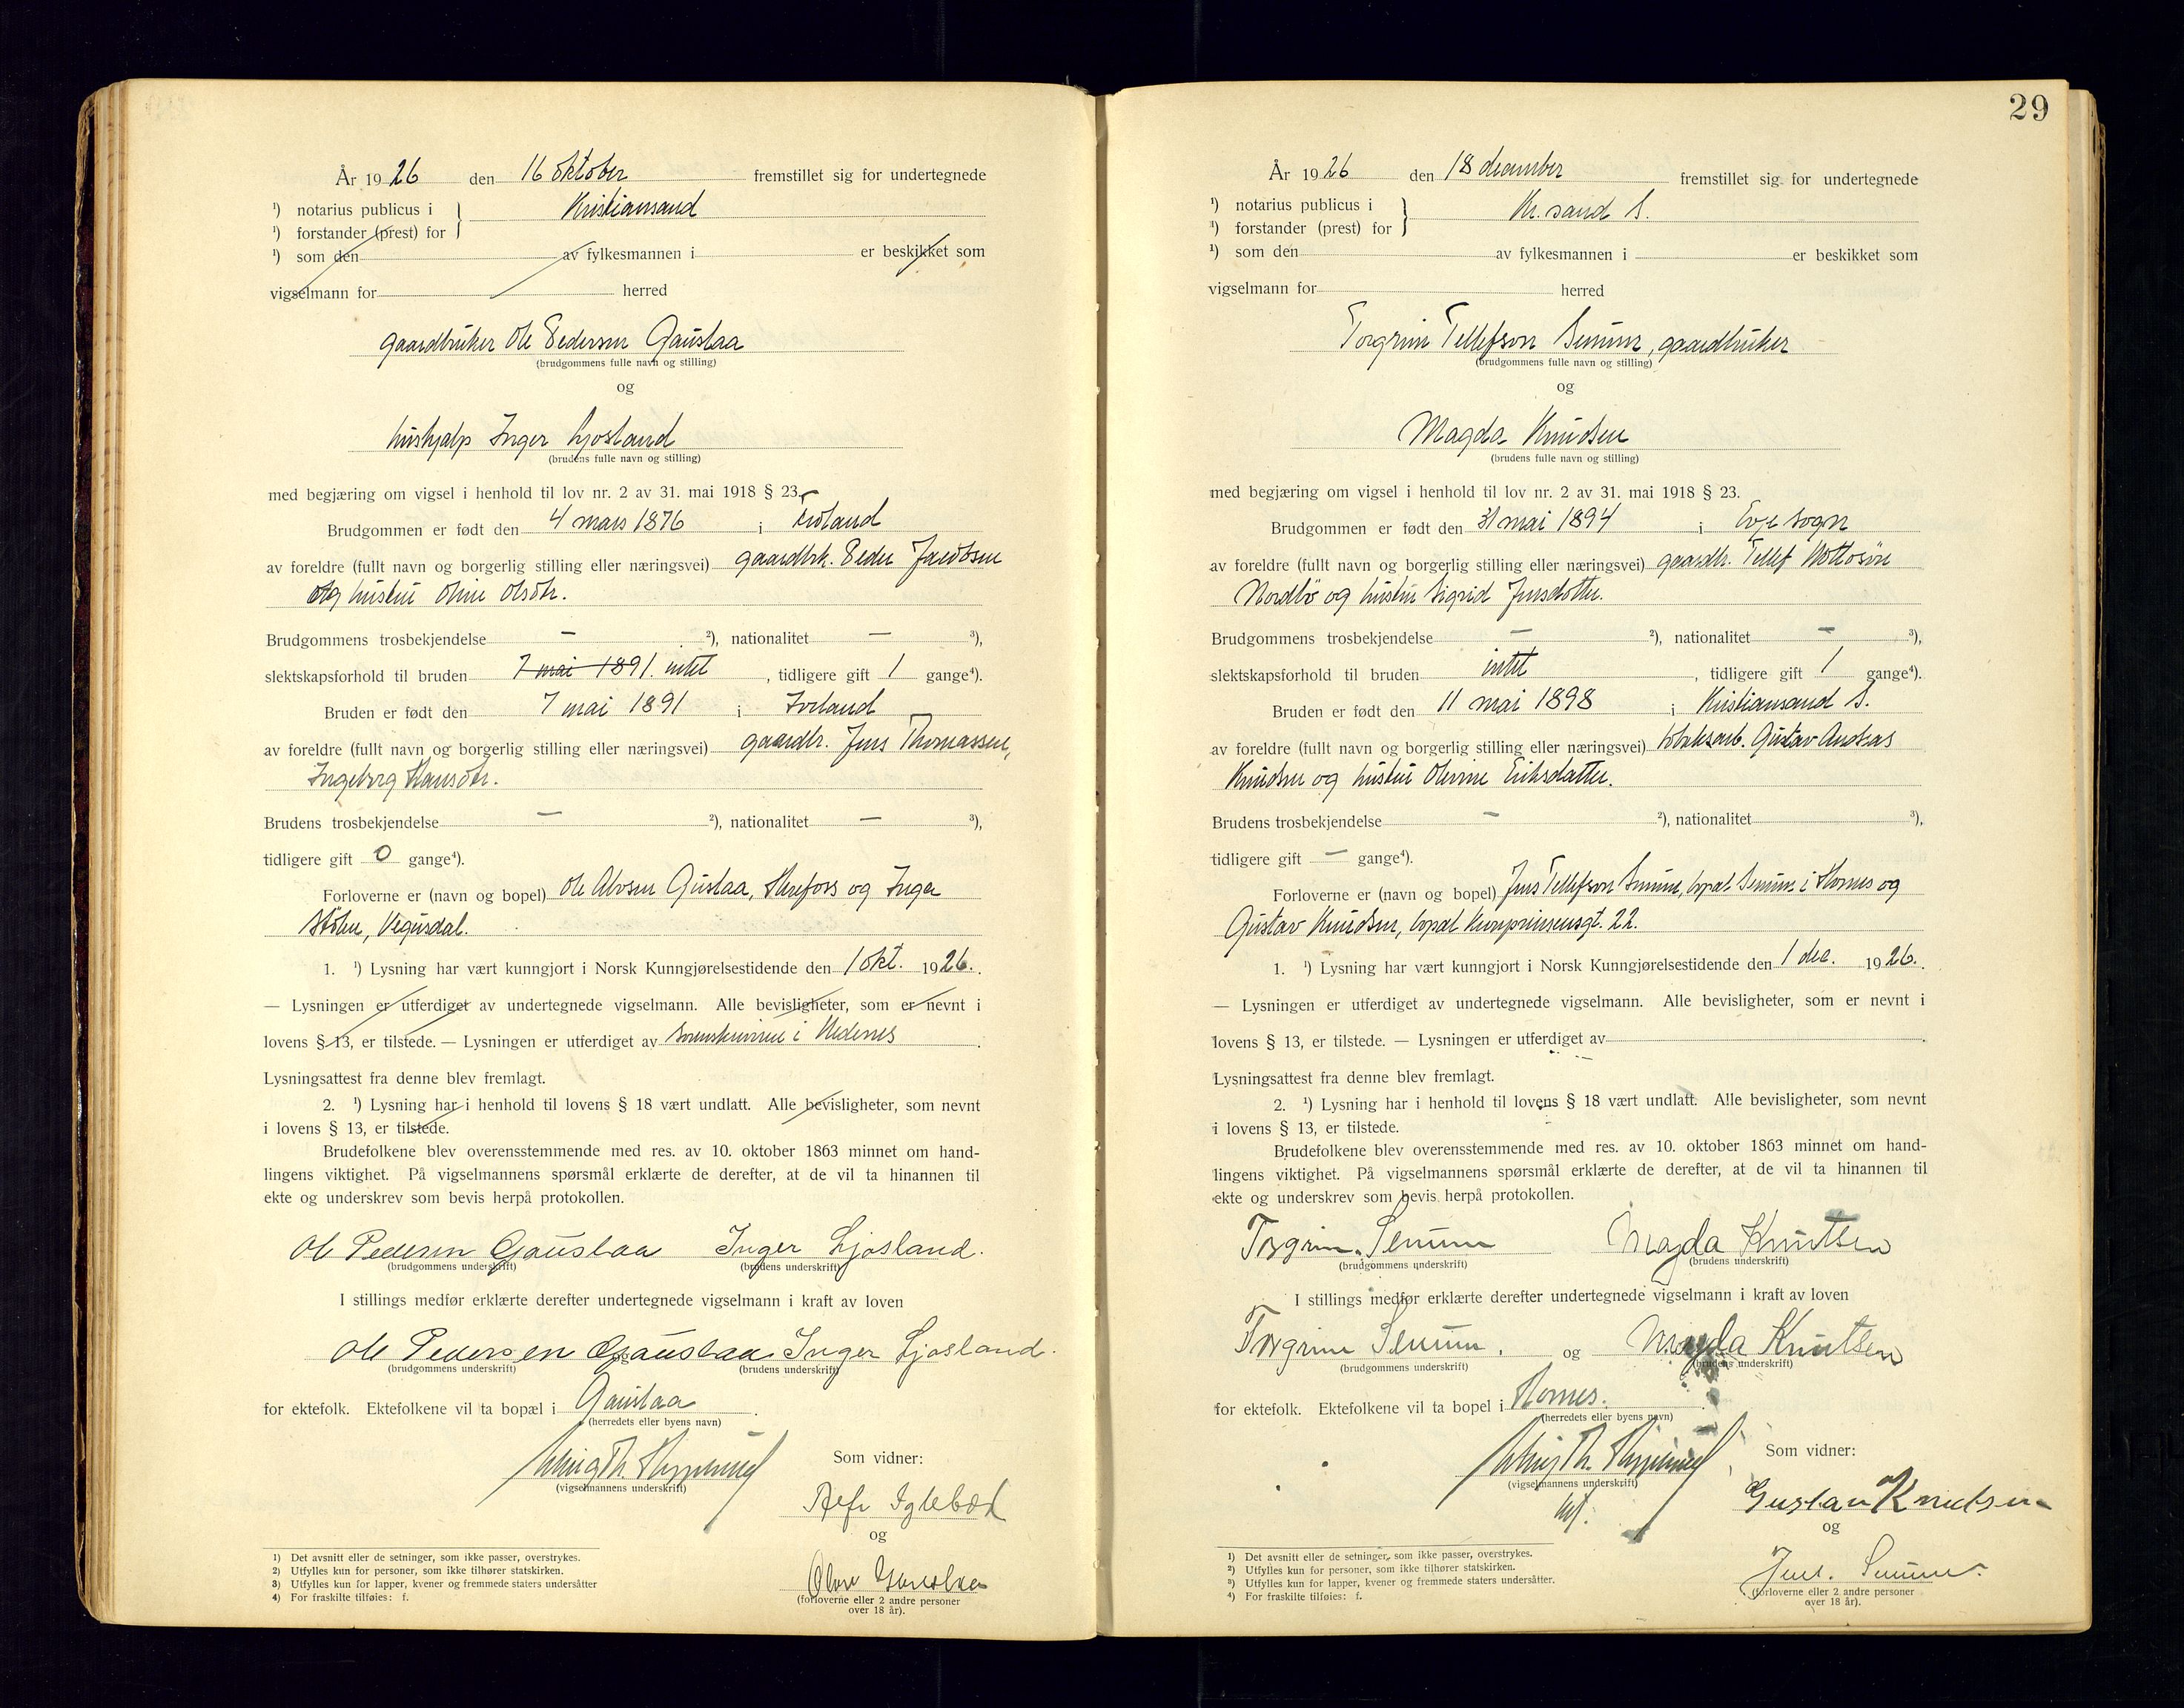 År 1926 den 16 oktober fremstillet sig for undertegnede
¹) notarius publicus i } Kristiansand
¹) forstander (prest) for
¹) som den av fylkesmannen i er beskikket som
vigselmann for herred
gaardbruker Ole Pedersen Gauslaa
(brudgommens fulle navn og stilling)
og
hushjalp Inger Ljosland
(brudens fulle navn og stilling)
med begjæring om vigsel i henhold til lov nr. 2 av 31. mai 1918 § 23.
Brudgommen er født den 4 mars 1876 i Iveland
av foreldre (fullt navn og borgerlig stilling eller næringsvei) gaardbrk. Peder Jacobsen
og hustru Oline Olsdtr.
Brudgommens trosbekjendelse — ²), nationalitet — ³),
slektskapsforhold til bruden 7 mai 1891. intet, tidligere gift 1 gange⁴).
Bruden er født den 7 mai 1891 i Iveland
av foreldre (fullt navn og borgerlig stilling eller næringsvei) gaardbr. Jens Thomassen,
Ingeborg Hansdtr.
Brudens trosbekjendelse — ²), nationalitet — ³),
tidligere gift 0 gange⁴).
Forloverne er (navn og bopel) Ole Gauslaa, Herefoss og Inger
Vegusdal.
1. ¹) Lysning har vært kunngjort i Norsk Kunngjørelsestidende den 1 okt. 1926.
— Lysningen er utferdiget av undertegnede vigselmann. Alle bevisligheter, som er nevnt i
lovens § 13, er tilstede. — Lysningen er utferdiget av sorenskriveren i Nedenes.
Lysningsattest fra denne blev fremlagt.
2. ¹) Lysning har i henhold til lovens § 18 vært undlatt. Alle bevisligheter, som nevnt
i lovens § 13, er tilstede.
Brudefolkene blev overensstemmende med res. av 10. oktober 1863 minnet om hand-
lingens viktighet. På vigselmannens spørsmål erklærte de derefter, at de vil ta hinannen til
ekte og underskrev som bevis herpå protokollen.
Ole Pedersen Gauslaa Inger Ljosland.
(brudgommens underskrift) (brudens underskrift)
I stillings medfør erklærte derefter undertegnede vigselmann i kraft av loven
Ole Pedersen Gauslaa og Inger Ljosland.
(brudgommens underskrift) (brudens underskrift)
for ektefolk. Ektefolkene vil ta bopæl i Gauslaa.
(herredets eller byens navn)
Som vidner:
(vigselmannens underskrift)
Iglebæk
og
Olav Gauslaa
(forloverne eller 2 andre personer
over 18 år).
1) Det avsnitt eller de setninger, som ikke passer, overstrykes.
2) Utfylles kun for personer, som ikke tilhører statskirken.
3) Utfylles kun for lapper, kvener og fremmede staters undersåtter
4) For fraskilte tilføies: f.
29
År 1926 den 18 december fremstillet sig for undertegnede
¹) notarius publicus i } Kr.sand S.
¹) forstander (prest) for
¹) som den av fylkesmannen i er beskikket som
vigselmann for herred
Torgrim Tellefson Senum, gaardbruker
(brudgommens fulle navn og stilling)
og
Magda Knudsen
(brudens fulle navn og stilling)
med begjæring om vigsel i henhold til lov nr. 2 av 31. mai 1918 § 23.
Brudgommen er født den 31 mai 1894 i Evje sogn
av foreldre (fullt navn og borgerlig stilling eller næringsvei) gaardbr. Tellef
Nordbø og hustru Sigrid Jensdotter.
Brudgommens trosbekjendelse — ²), nationalitet — ³),
slektskapsforhold til bruden intet, tidligere gift 1 gange⁴).
Bruden er født den 11 mai 1898 i Kristiansand S.
av foreldre (fullt navn og borgerlig stilling eller næringsvei) tobaksarb. Gustav Andreas
Knudsen og hustru Olevine Eriksdatter.
Brudens trosbekjendelse — ²), nationalitet ³),
tidligere gift — gange⁴).
Forloverne er (navn og bopel) Jens Tellefson Senum, bopæl Senum i Hornes og
Gustav Knudsen, bopæl Kronprinsensgt. 22.
1. ¹) Lysning har vært kunngjort i Norsk Kunngjørelsestidende den 1 dec. 1926.
— Lysningen er utferdiget av undertegnede vigselmann. Alle bevisligheter, som er nevnt i
lovens § 13, er tilstede. — Lysningen er utferdiget av .
Lysningsattest fra denne blev fremlagt.
2. ¹) Lysning har i henhold til lovens § 18 vært undlatt. Alle bevisligheter, som nevnt
i lovens § 13, er tilstede.
Brudefolkene blev overensstemmende med res. av 10. oktober 1863 minnet om hand-
lingens viktighet. På vigselmannens spørsmål erklærte de derefter, at de vil ta hinannen til
ekte og underskrev som bevis herpå protokollen.
Torgrim Senum Magda Knutsen
(brudgommens underskrift) (brudens underskrift)
I stillings medfør erklærte derefter undertegnede vigselmann i kraft av loven
Torgrim Senum. og Magda Knutsen
(brudgommens underskrift) (brudens underskrift)
for ektefolk. Ektefolkene vil ta bopel i Hornes.
(herredets eller byens navn)
Som vidner:
(vigselmannens underskrift)
Gustav Knudsen
og
Jens. Senum.
(forloverne eller 2 andre personer
over 18 år).
1) Det avsnitt eller de setninger, som ikke passer, overstrykes.
2) Utfylles kun for personer, som ikke tilhører statskirken.
3) Utfylles kun for lapper, kvener og fremmede staters undersåtter.
4) For fraskilte tilføies: f.